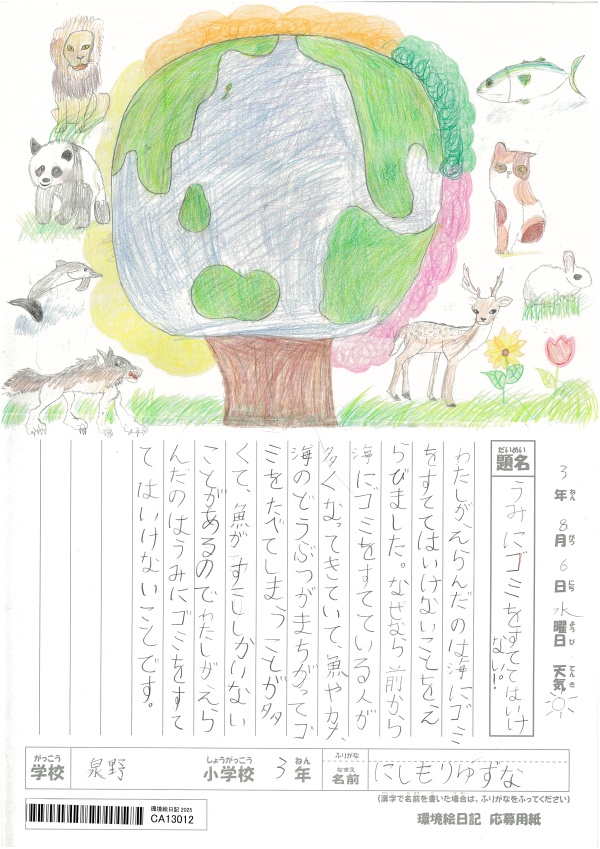 3年8月6日水曜日 天気
ねん がつ にち ようび てんき
だいめい
題名
うみにゴミをすててはいけ
ない!!
わたしが、えらんだのは海にゴミ
をすててはいけないことをえ
らびました。なぜなら前から
海にゴミをすてている人が
多くなってきていて、魚やカメ、
海のどうぶつがまちがってゴ
ミをたべてしまうことが多
くて、魚がすこししかいない
ことがあるのでわたしがえら
んだのはうみにゴミをすて
てはいけないことです。
がっこう
学校
泉野
しょうがっこう
小学校
3
ねん
年
ふりがな
なまえ
名前
にしもりゆずな
(漢字で名前を書いた場合は、ふりがなをふってください)
環境絵日記 2025
CA13012
環境絵日記 応募用紙